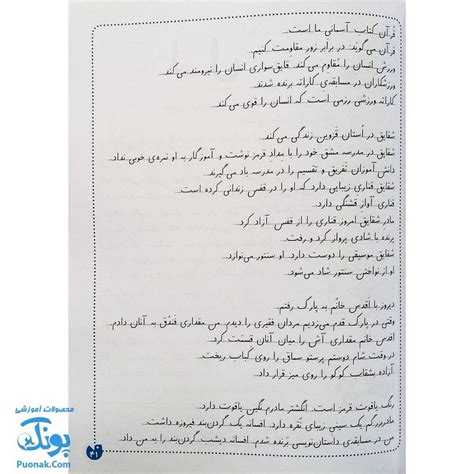 قرآن کتاب آسمانی ما است.
قرآن می‌گوید: در برابر زور مقاومت کنیم.
ورزش انسان را مقاوم می‌کند. قایق‌سواری انسان را نیرومند می‌کند.
ورزشکاران در مسابقه‌ی کاراته برنده شدند.
کاراته ورزشی رزمی است که انسان را قوی می‌کند.
شقایق در استان قزوین زندگی می‌کند.
شقایق در مدرسه مشق خود را با مداد قرمز نوشت و آموزگار به او نمره‌ی خوبی نداد.
دانش‌آموزان تفریق و تقسیم را در مدرسه یاد می‌گیرند.
شقایق قناری زیبایی دارد که او را در قفس زندانی کرده است.
قناری آواز قشنگی دارد.
مادر شقایق امروز قناری را از قفس آزاد کرد.
پرنده با شادی پرواز کرد و رفت.
شقایق موسیقی را دوست دارد. او سنتور می‌نوازد.
او از نواختن سنتور شاد می‌شود.
دیروز با اقدس خانم به پارک رفتم.
وقتی در پارک قدم می‌زدیم مردان فقیری را دیدم. من مقداری فندق به آنان دادم.
اقدس خانم مقداری آش را میان آنان قسمت کرد.
در وقت شام دوستم پرستو سماق را روی کباب ریخت.
آزاده بشقاب کوکو را روی میز قرار داد.
رنگ یاقوت قرمز است. انگشتر مادرم نگین یاقوت دارد.
مادربزرگم یک سینی زیبای نقره دارد. افسانه یک گردن‌بند فیروزه داشت.
من در مسابقه‌ی داستان‌نویسی برنده شدم. افسانه دیشب گردن‌بند را به من داد.
۴۱
محصولات آموزشی
پونک
Puonak.Com